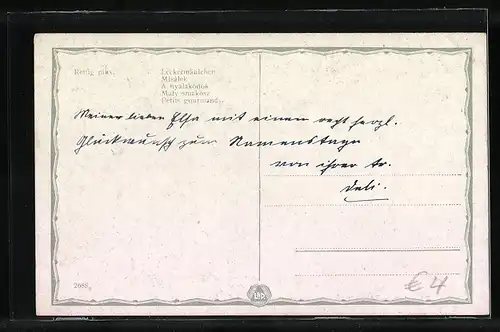 Rettig pinx.
Leckermäulchen
Mlsálek
A nyalakodók
Mały smakosz
Petits gourmands
Meiner lieben Elsa mit einem recht herzl.
Glückwunsch zum Namenstage
von ihrer tr.
Deli.
2688
€ 4